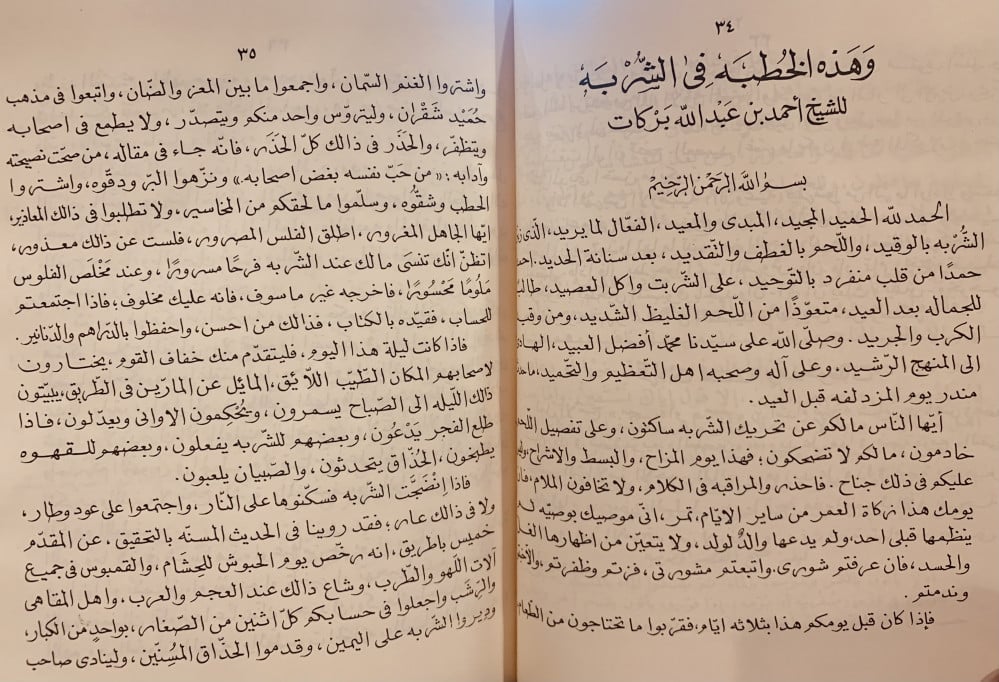 ٣٤
وَهَذه الخُطبَه فِى الشُّرْبَه
للشيخ أحمد بن عَبْد الله بَركات
بسم الله الرحمن الرحيم
الحمد لله الحميد المجيد، المبدى والمعيد، الفعّال لما يريد، الذى
الشُّربه بالوقيد، واللحم بالقطف والتقديد، بعد سنانة الحديد.
حمدًا من قلب منفرد بالتّوحيد، على الشّربت واكل العصيد،
للجماله بعد العيد، متعوّذًا من اللحم الغليظ الشّديد، ومن وقت
الكرب والجريد. وصلّى الله على سيّدنا محمّد أفضل العبيد،
الى المنهج الرّشيد. وعلى آله وصحبه اهل التّعظيم والتّحميد،
مندر يوم المزدلفه قبل العيد.
أيّها النّاس مالكم عن تحريك الشّربه ساكنون، وعلى تفصيل
خادمون، مالكم لا تضحكون؛ فهذا يوم المزاح، والبسط والانشراح،
عليكم فى ذلك جناح. فاحذر والمراقبه فى الكلام، ولا تخافون الملام،
يومك هذا نزكاة العمر من ساير الايّام، تمر، انّى موصيك بوصيّه
ينتظمها قبلى احد، ولم يدعها والدٌ لولد، ولا يتعيّن من اظهارها
والحسد، فان عرفتم شورى. واتبعتم مشورتى، فزتم وظفرتم،
وندمتم.
فإذا كان قبل يومكم هذا بثلاثه ايّام، فقرّبوا ما تحتاجون من الطّعام
٣٥
واشتروا الغنم السّمان، واجمعوا ما بين المعز والضّان، واتبعوا فى مذهب
حُمَيْد شَقْران، وليتروّس واحد منكم ويتصدّر، ولا يطمع فى اصحابه
ويتظفّر، والحذَر فى ذالك كلّ الحذَر، فانّه جاء فى مقاله، من صحّت نصيحته
وآدابه: «من حَبّ نفسه بغض اصحابه.» ونزّهوا البّر ودقّوه، واشتروا
الحطب وشقّوه، وسلّموا ما لحقكم من المخاسير، ولا تطلبوا فى ذالك المعاذير،
ايّها الجاهل المغرور، اطلق الفلس المصرور، فلست عن ذالك معذور،
اتظنّ انّك تنسَى مالك عند الشّربه فرحًا مسرورًا، وعند مخْلَص الفلوس
مَلُومًا مَحْسُورًا، فاخرجه غير ماسوف، فانه عليك مخلوف، فاذا اجتمعتم
للحساب، فقيّده بالكتاب، فذالك من احسن، واحفظوا بالدّراهم والدّنانير.
فاذا كانت ليلة هذا اليوم، فليتقدّم منك خفاف القوم، يختارون
لاصحابهم المكان الطّيّب اللائق، المائل عن المارّين فى الطّريق، يبيّتون
ذالك اللّيله الى الصّباح يسمرون، ويُحْكِمون الاوانى ويعدّلون، فاذا
طلع الفجر يَدْعُون، وبعضهم للشّربه يفعلون، وبعضهم للقهوه
يطبخون، الحُذّاق يتحدثون، والصّبيان يلعبون.
فاذا اِنْضَجَّت الشّربه فسكّنوها على النّار، واجتمعوا على عود وطار،
ولا فى ذالك عار؛ فقد روينا فى الحديث المسنّه بالتحقيق، عن المقدّم
خميس باطريق، انه رخّص يوم الحبوش للحِشَام، والقمبوس فى جميع
آلات اللهو والطّرب، وشاع ذالك عند العجم والعرب، واهل المقاهى
والرَشَب واجعلوا فى حسابكم كلّ اثنين من الصّغار، بواحدٍ من الكبار،
وديروا الشّربه على اليمين، وقدموا الحذّاق المُسِنّين، ولينادى صاحب